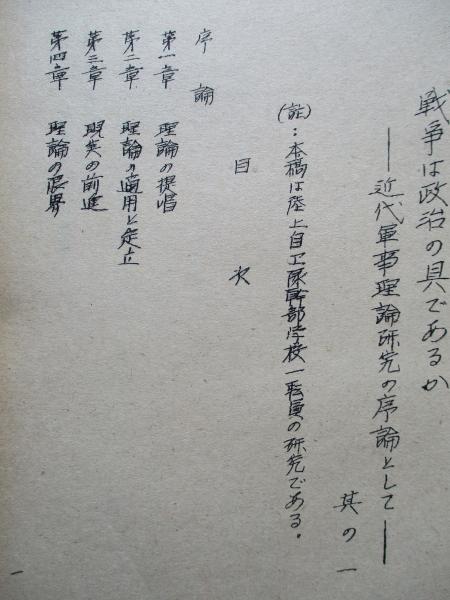 戦争は政治の具であるか
――近代軍事理論研究の序論として――
其の一
(註)：本稿は陸上自卫隊幹部学校一職員の研究である。
目次
序論
第一章 理論の提唱
第二章 理論の適用と定立
第三章 現実の前進
第四章 理論の限界
一